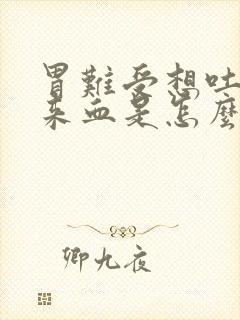 胃難受想吐
來血是怎麼
卿九夜